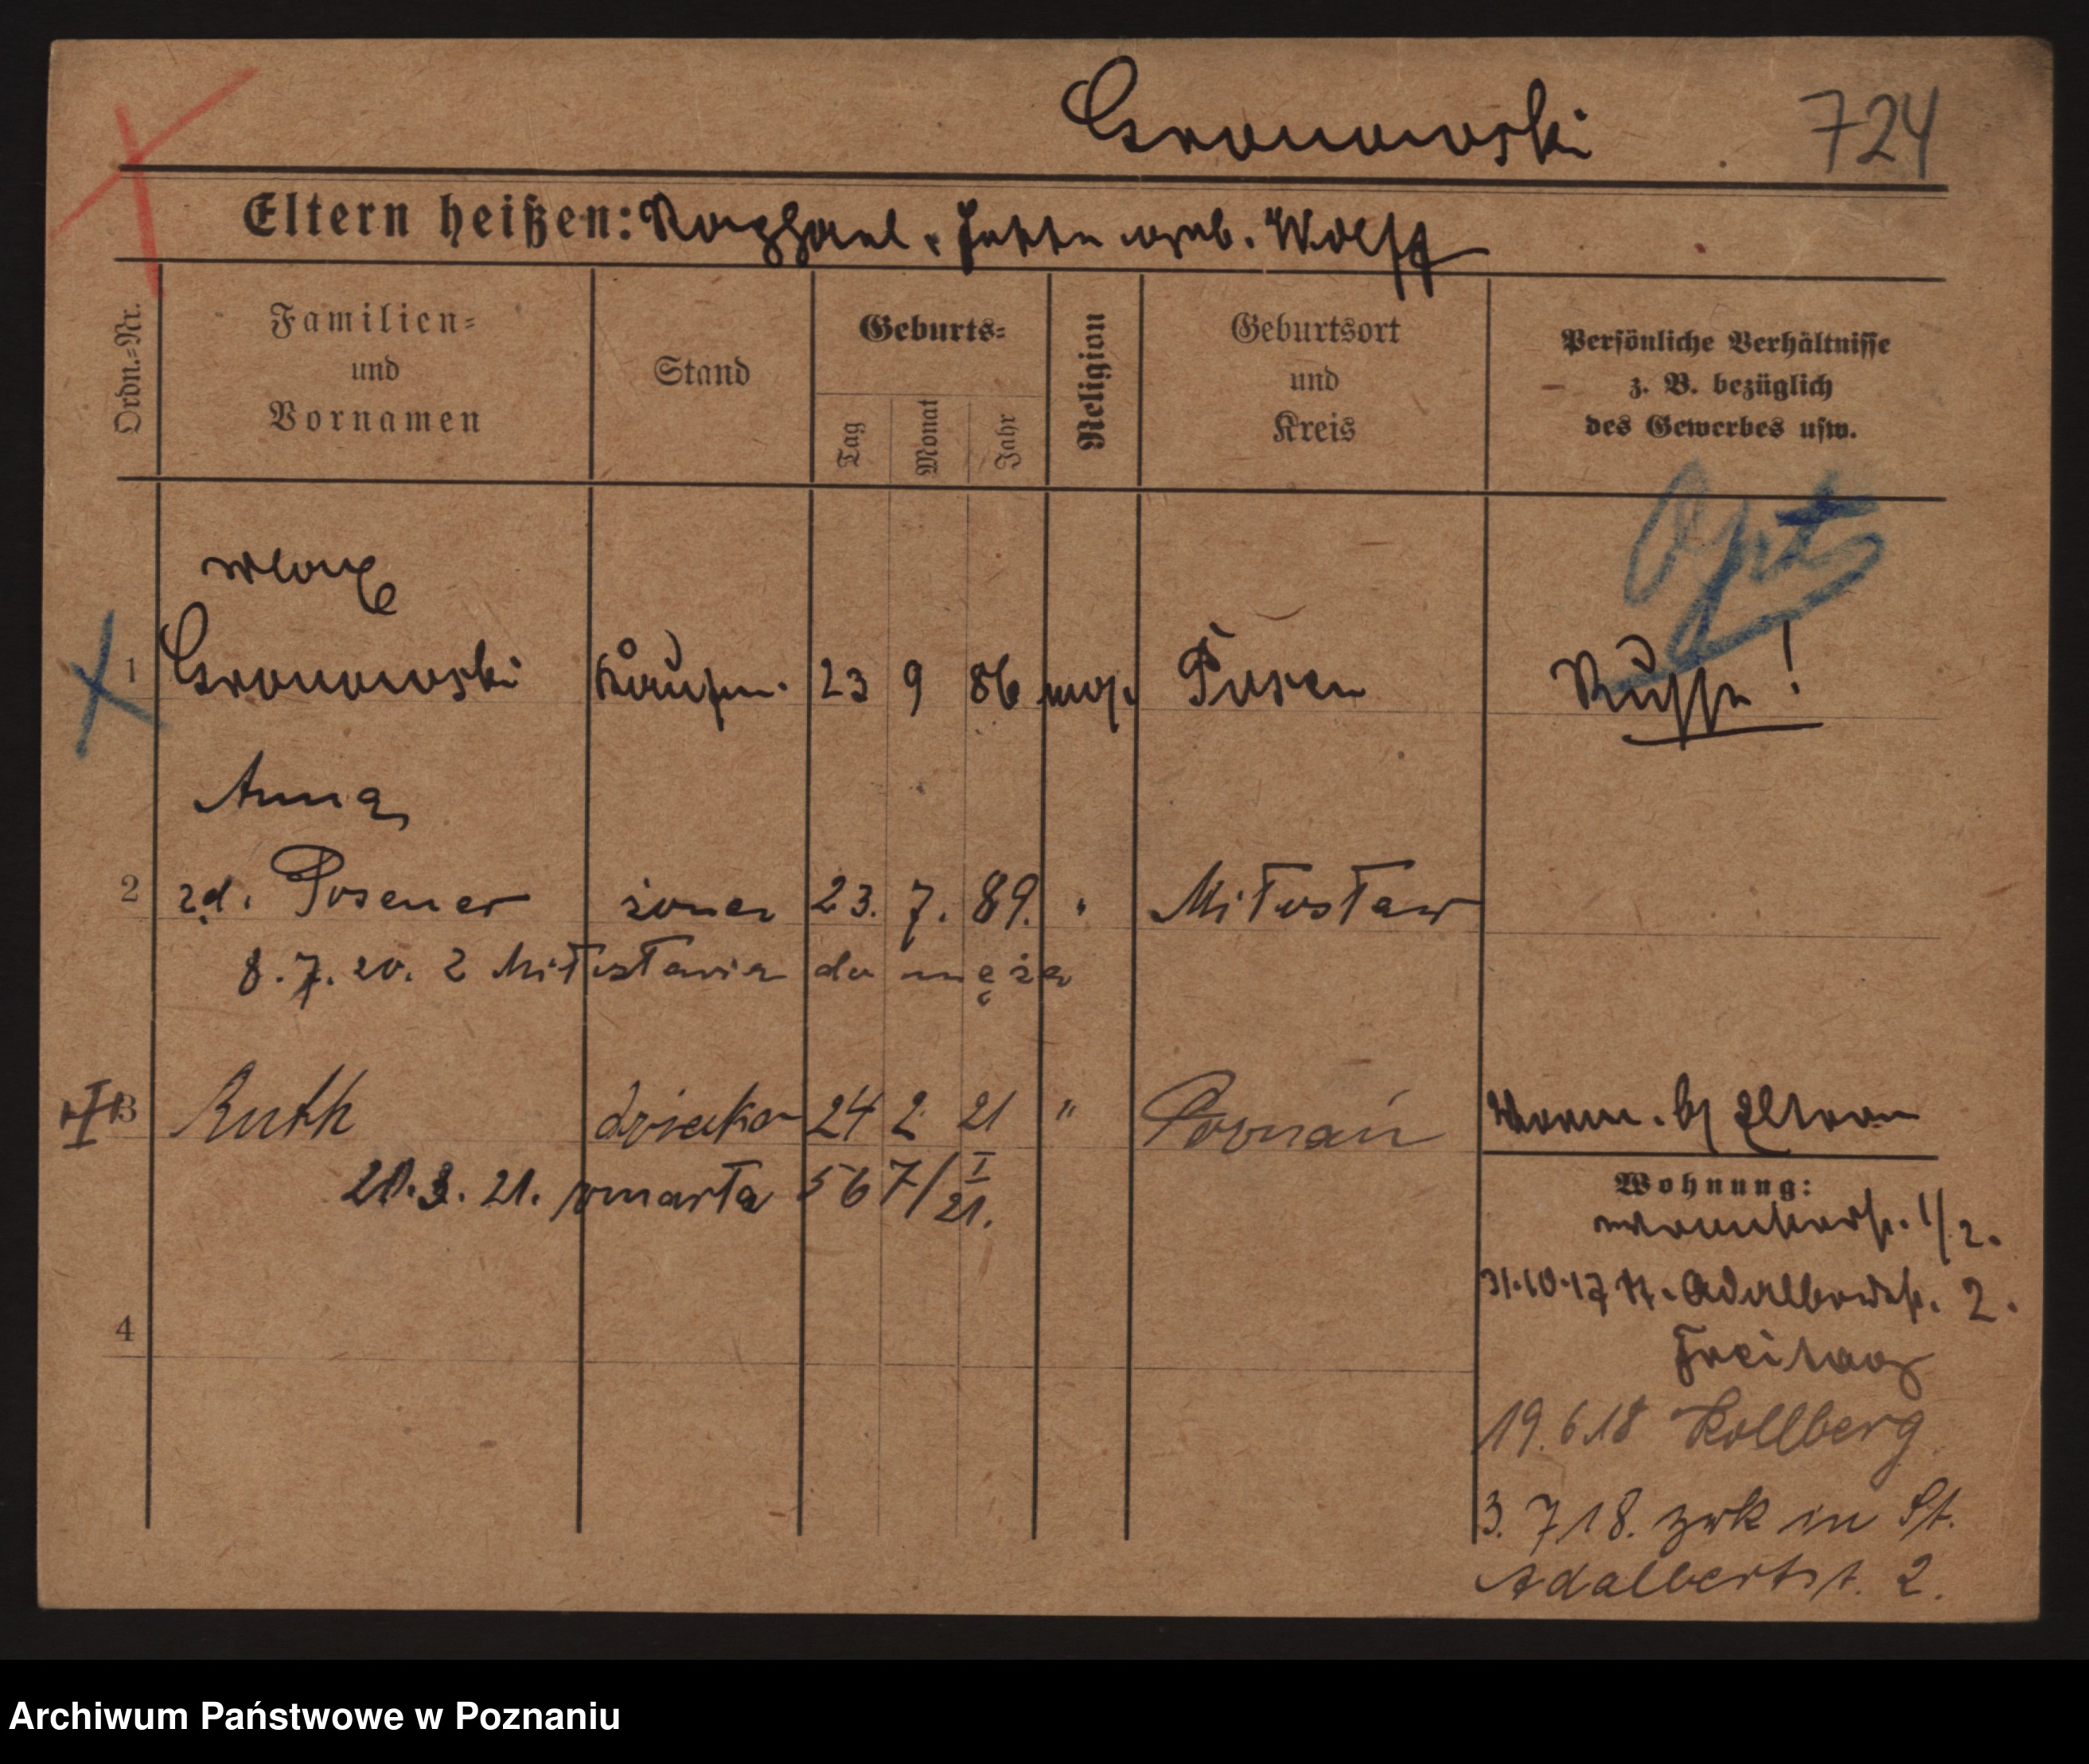 Gronowski 724
Eltern heißen: Raphael, Jette geb. Wolff
Ordn.-Nr.
Familien-
und
Vornamen
Stand
Geburts-
Tag
Monat
Jahr
Religion
Geburtsort
und
Kreis
Persönliche Verhältnisse
z. B. bezüglich
des Gewerbes usw.
Opt
Max
1 Gronowski Kaufm. 23 9 86 mos. Posen Russe!
Anna
2 zd. Posener żona 23. 7. 89. " Miłosław
8.7.20. z Miłosławia do męża
3 Ruth dziecko 24 2 21 " Poznań
Worm. b/ Eltern
21. 3. 21. zmarła 567/I 21.
Wohnung:
1/2.
31.10.17 Adalbertstr. 2.
Freitag
4
19.6.18 Kollberg
3. 7 18. zrk in St.
Adalbertst. 2.
Archiwum Państwowe w Poznaniu